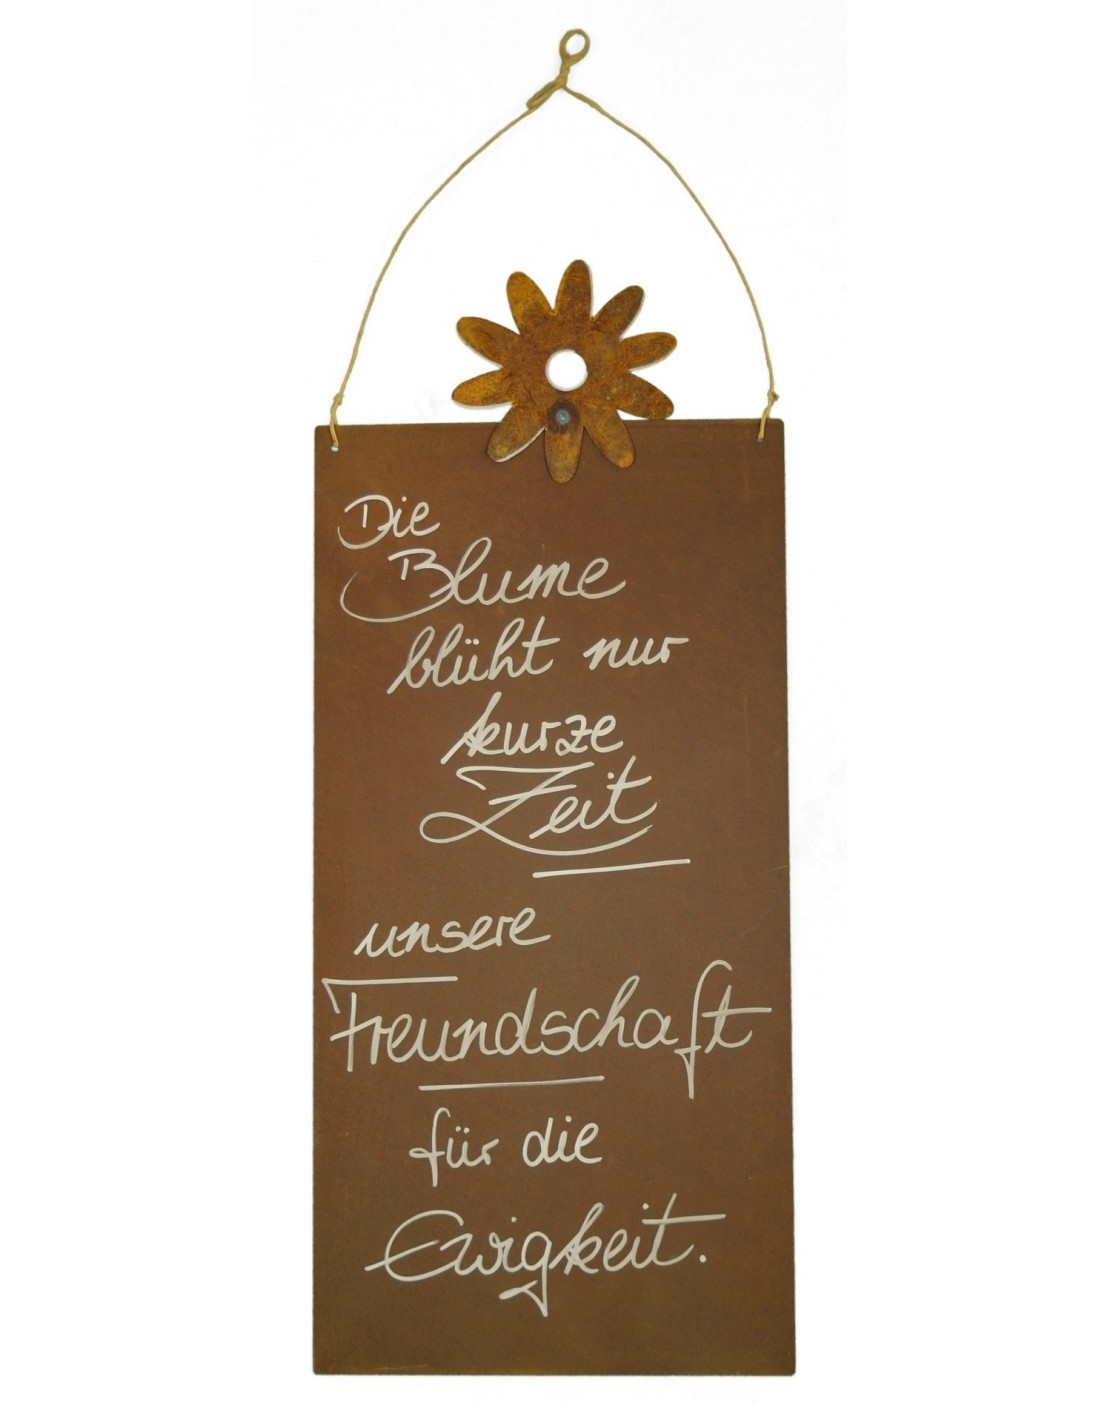 Die
Blume
blüht nur
kurze
Zeit
unsere
Freundschaft
für die
Ewigkeit.